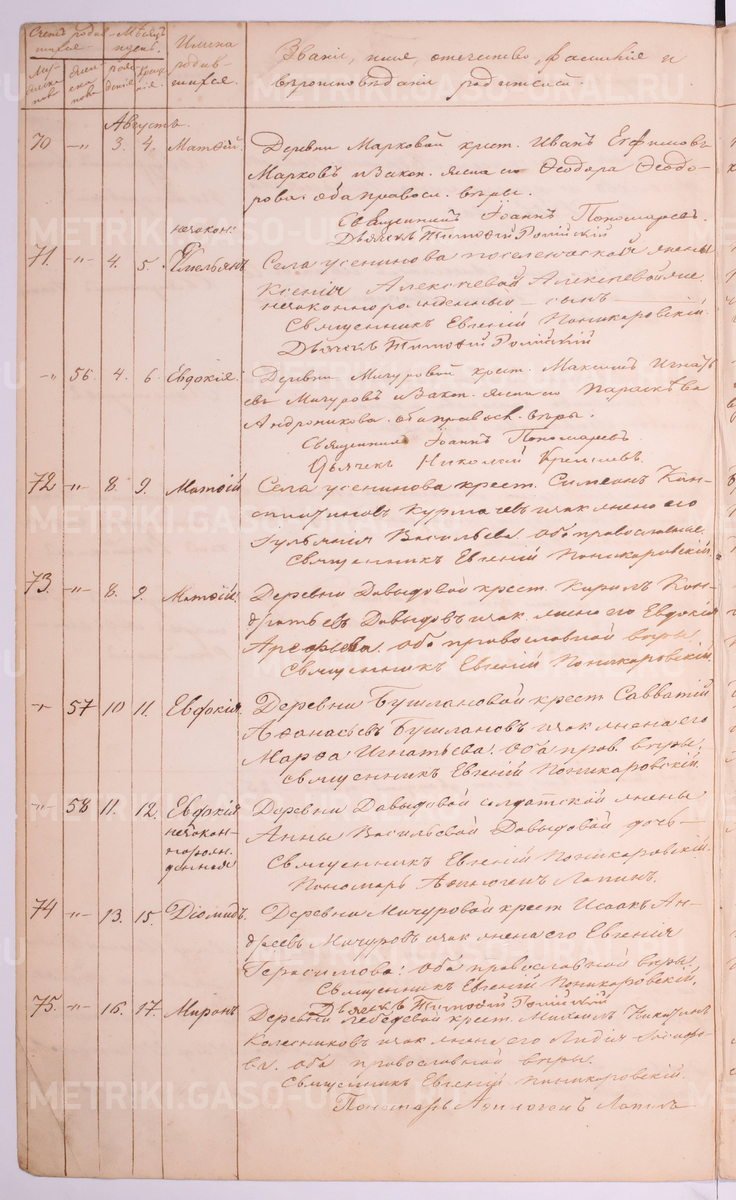 Счетъ родив-
шихся.
Мѣсяцъ
Имена
родив-
шихся.
Званіе, имя, отечество, фамиліе и
вѣроисповѣданіе родителей.
Августъ
70 -"- 3. 4. Матѳій. Деревни Марковой крест. Иванъ Евфимовъ
Марковъ и закон. жена его Ѳеодора Ѳеодо-
рова: оба правосл. вѣры.
Священникъ Іоаннъ Пономаревъ.
Дьячекъ Тимофій
незакон:
71. -"- 4. 5. Емельянъ Села Усенинова поселенческой жены
Ксеніи Алексѣевой
незаконнорожденный сынъ
Священникъ Евгеній Поникаровскій.
Дьячекъ Тимофій
-"- 56. 4. 6. Евдокія. Деревни Мичуровой крест. Максимъ Игнать-
евъ Мичуровъ и закон. жена его Параскѣва
Андроникова. оба правосл. вѣры.
Священникъ Іоаннъ Пономаревъ
Дьячекъ Николай
72 -"- 8. 9. Матѳій Села Усенинова крест. Симеонъ Кон-
стантиновъ Курмачевъ и зак жена его
Гульянія Васильева. оба православные.
Священникъ Евгеній Поникаровскій.
73. -"- 8. 9. Матѳій. Деревни Давыдовой крест. Кирилъ Кон-
дратьевъ Давыдовъ и зак. жена его Евдокія
Арефьева. оба православной вѣры
Священникъ Евгеній Поникаровскій.
-"- 57 10 11. Евдокія. Деревни Бушлановой крест Савватій
Аѳанасьевъ Бушлановъ и зак жена его
Марѳа Игнатьева: оба прав. вѣры:
Священникъ Евгеній Поникаровскій.
-"- 58 11. 12. Евдокія Деревни Давыдовой солдатской жены
незакон-
норож-
денная
Анны Васильевой Давыдовой дочь
Священникъ Евгеній Поникаровскій.
Пономарь Аѳиногенъ Лапинъ.
74 -"- 13. 15. Діомидъ. Деревни Мичуровой крест Исаакъ Ан-
дреевъ Мичуровъ и зак жена его Евгенія
Герасимова: оба православной вѣры
Священникъ Евгеній Поникаровскій.
Дьячекъ Тимофій
75. -"- 16. 17. Миронъ. Деревни Лебедевой крест. Михаилъ Никитинъ
Колесниковъ и зак жена его Лидія
ва. оба православной вѣры.
Священникъ Евгеній Поникаровскій.
Пономарь Аѳиногенъ Лапинъ
METRIKI.GASO-URAL.RU